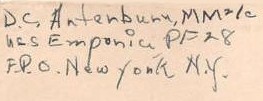 D.C. Antenburn, MM2/c
USS Emporia PF28
F.P.O. New York N.Y.